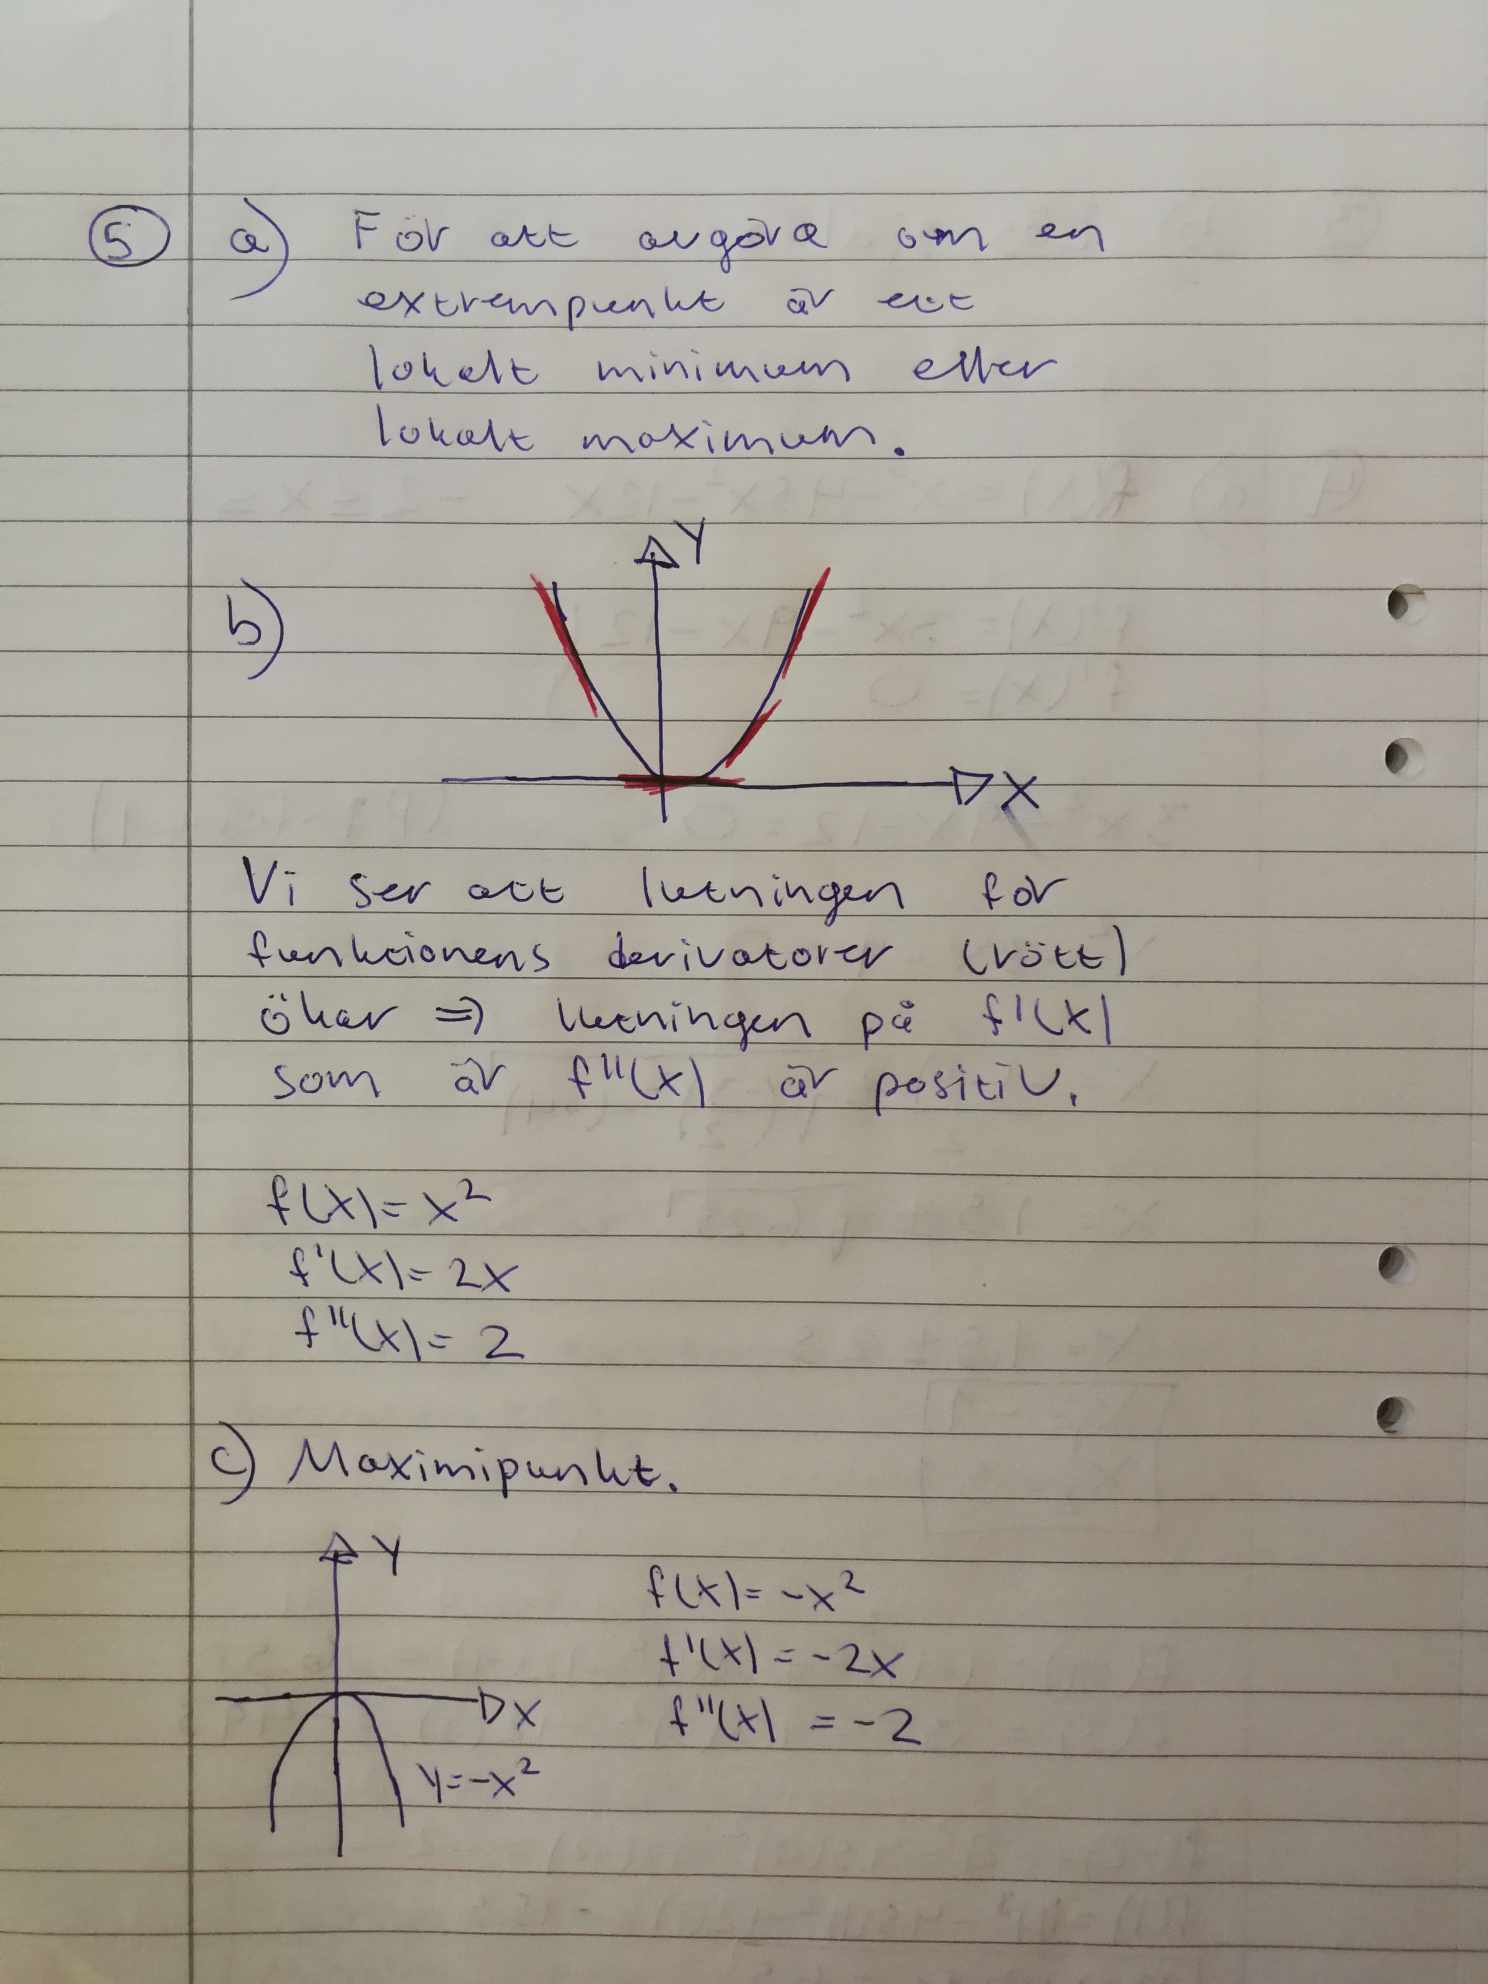 5 a) För att avgöra om en
extrempunkt är ett
lokalt minimum eller
lokalt maximum.
Y
b)
X
Vi ser att lutningen för
funktionens derivator (rött)
ökar => lutningen på f'(x)
som är f''(x) är positiv.
f(x) = x²
f'(x) = 2x
f''(x) = 2
c) Maximipunkt.
Y
f(x) = -x²
f'(x) = -2x
X
f''(x) = -2
y = -x²